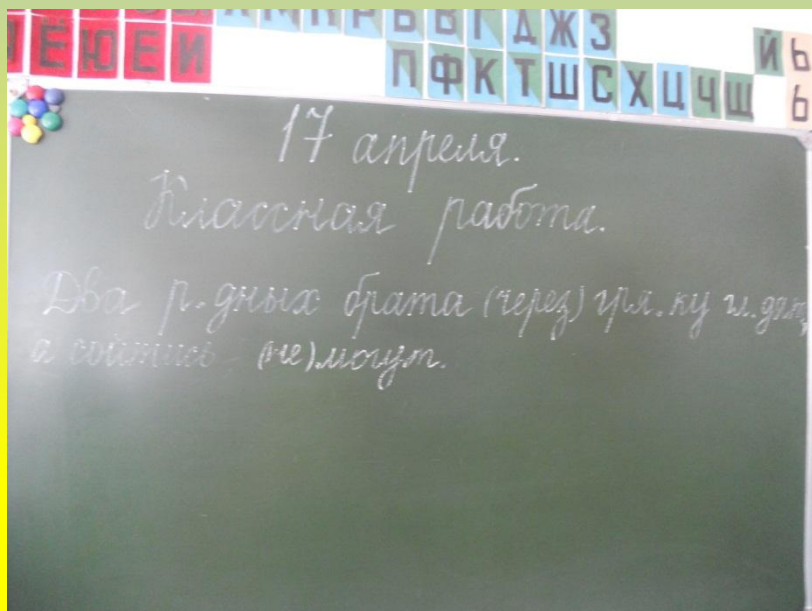 Ё Ю Е И
В Г Д Ж З
П Ф К Т Ш С Х Ц Ч Щ
Й Ь
17 апреля.
Классная работа.
Два р.дных брата (через) гря.ку гл.дят,
а сойтись (не)могут.